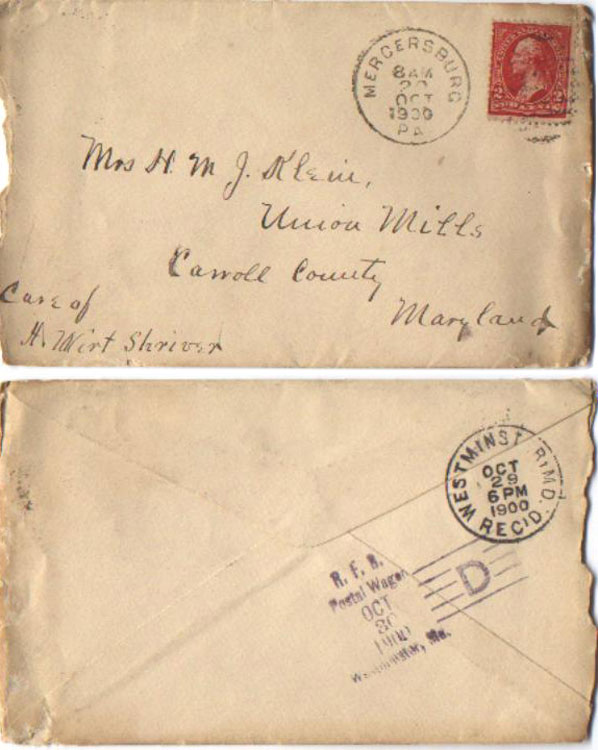 MERCERSBURG
8 AM
OCT
1900
PA
2 2
Mrs H. M J. Klein,
Union Mills
Carroll County
Maryland
Care of
H. Wirt Shriver
WESTMINST R. MD.
OCT
29
6 PM
1900
REC'D.
R. F. D.
Postal Wagon
OCT
30
1900
Westminster, Md.
D